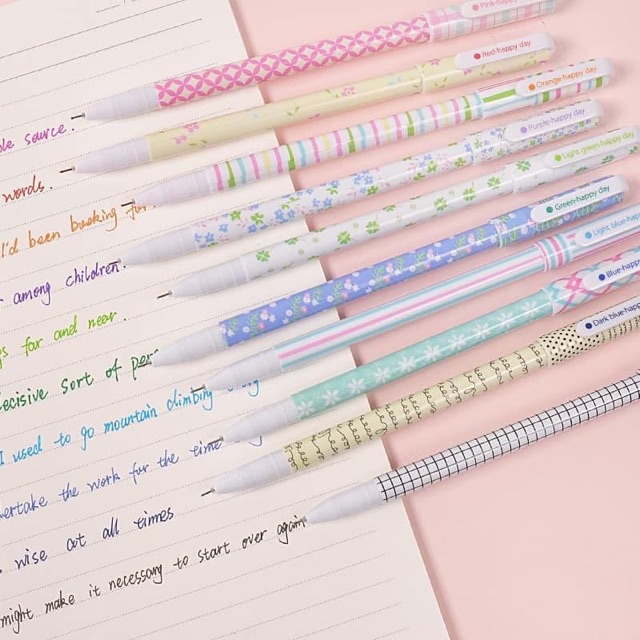 Pink-happy day
Red-happy day
Orange-happy day
Purple-happy day
Light green-happy day
Green-happy day
Light blue-happy
Blue-happy
Dark blue-happy
source.
words.
I'd been
among children.
far and near.
sort of
I used to go mountain climbing
the work for the time
wise at all times
might make it necessary to start over again